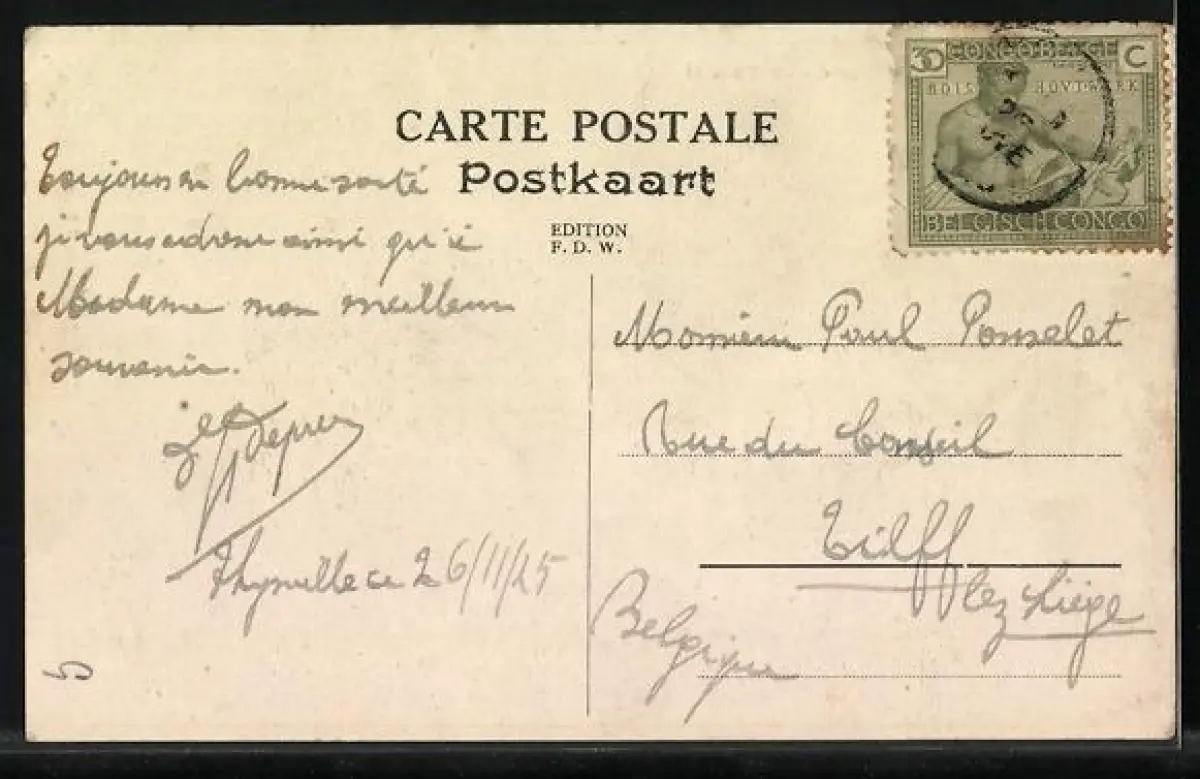 CARTE POSTALE
Postkaart
EDITION
F. D. W.
30 CONGO BELGE C
BOIS HOVTWERK
BELGISCH CONGO
Toujours en bonne santé
je vous adresse ainsi qu'à
Madame mon meilleur
souvenir.
Thysville ce 6/11/25
Monsieur Paul Ponselet
Rue du Conseil
Tilff
lez Liége
Belgique